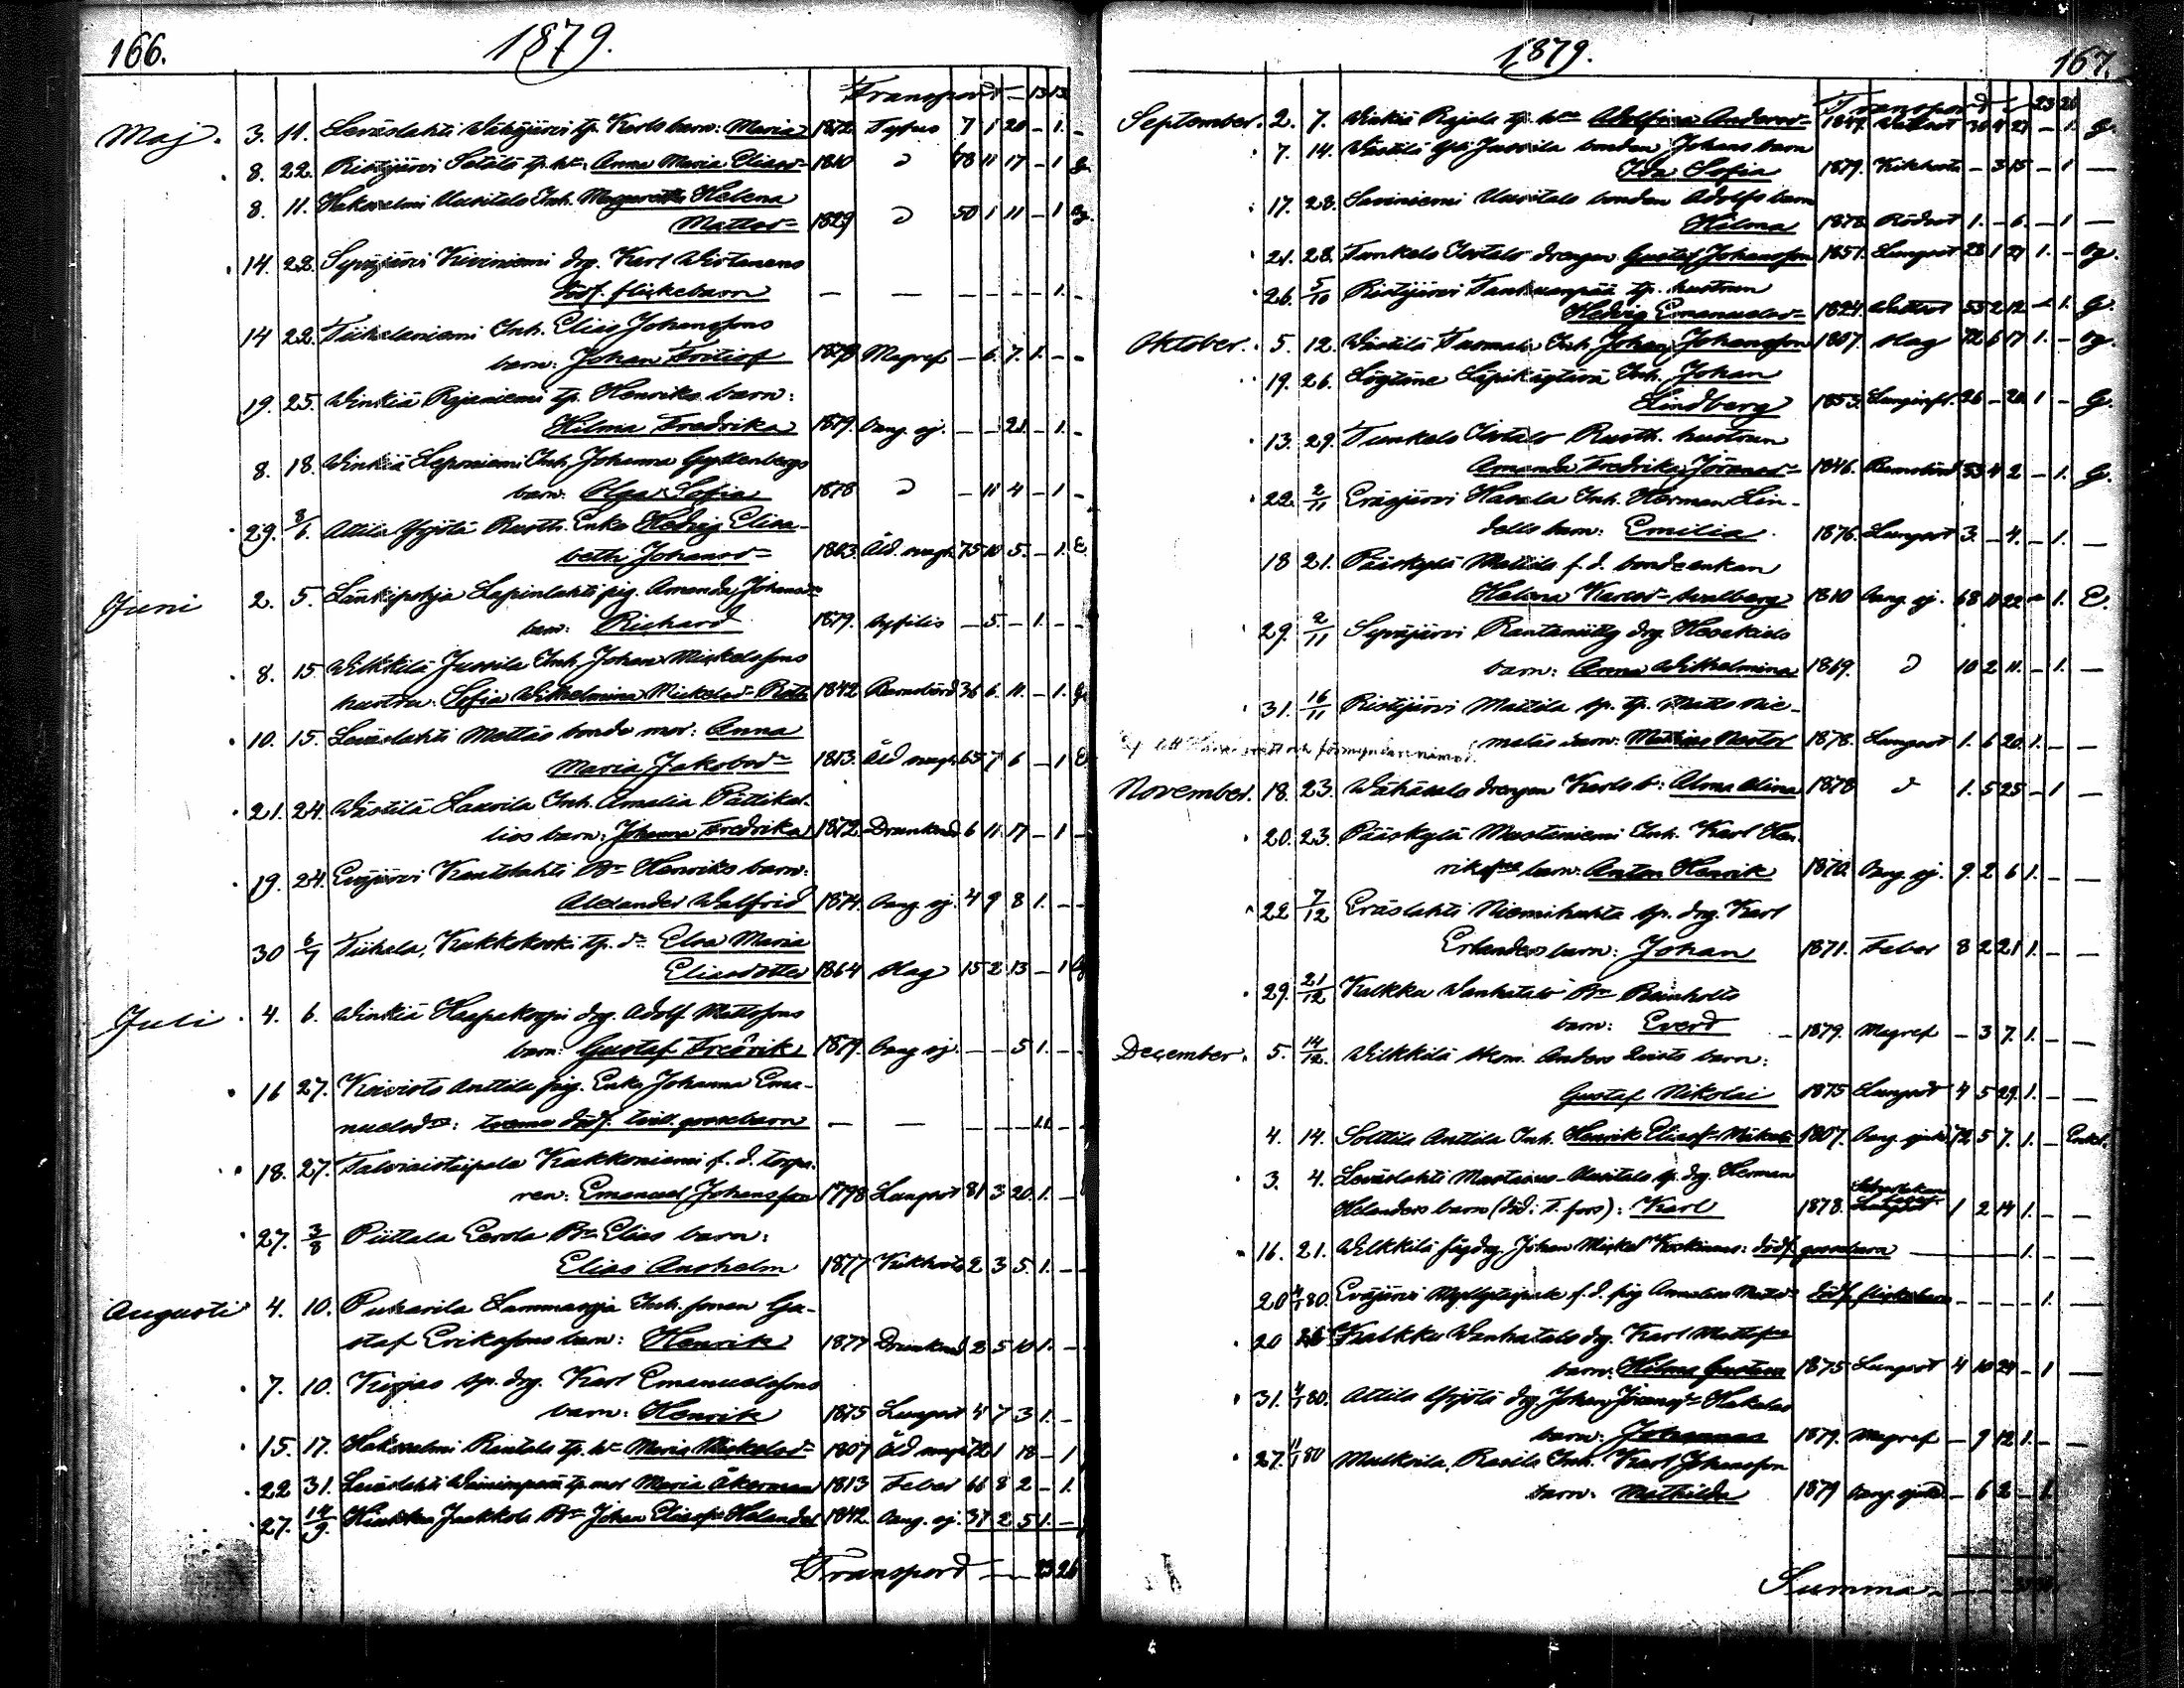 166. 1879.
Transport — 13 13
Maj. 3. 11. Leväslahti Wähäjärvi tp. Karls barn: Maria 1872. Tyfus 7 1 20 – 1. –
8. 22. Ristijärvi Satala tp. h:u Anna Maria Eliasd:r 1810 d 78 11 17 – 1
8. 11. Hakosalmi Uusitalo Inh. Margaretha Helena
Mattsd:r 1829 d 50 1 11 – 1
14. 22. Syväjärvi Kiviniemi drg. Karl Wirtanens
dödf. flickebarn — — – – – – 1. –
14 22. Tiihalaniemi Inh. Elias Johanssons
barn: Johan Fritiof 1878 Magref – 6. 7. 1. – –
19. 25. Winkiä Rajaniemi tp. Henriks barn:
Hilma Fredrika 1879. Oang. sj. – – 21. – 1. –
8. 18. Winkiä Leponiemi Inh. Johanna Gyllenbergs
barn: Olga Sofia 1878 d – 11 4 – 1 –
29. 8/6. Attila Yrjölä Rusth. Enka Hedvig Elisa-
beth Johansd:r 1803. Åld. svagh. 75 10 5. – 1. E.
Juni 2. 5. Länkipohja Lapinlahti pig. Amanda Johansd:r
barn: Richard 1879. Syfilis – 5. – 1. – –
8. 15 Wilkkilä Jussila Inh. Johan Mickelssons
hustru: Sofia Wilhelmina Mickelsd:r 1842 Barnsbörd 36 6. 11. – 1.
10. 15. Leväslahti Mattas bonde mor: Anna
Maria Jakobsd:r 1813. Åld svagh. 65 7 6 – 1 E
21. 24. Wästilä Laurila Inh. Amalia
barn: Johanna Fredrika 1872. Drunknad 6 11. 17 – 1 –
19. 24. Eväjärvi Kautolahti B:n Henriks barn:
Alexander Walfrid 1874. Oang. sj. 4 9 8 1. – –
30 6/7 Tiihala, Kukkokoski tp. d:r Elva Maria
Eliasdotter 1864 Slag 15 2 13 – 1
Juli 4. 6. Winkiä Haapakorpi drg. Adolf Mattssons
barn: Gustaf Fredrik 1879. Oang sj. – – 5 1. – –
16 27. Koivisto Anttila pig. Enka Johanna Ema-
nuelsd:r: tvenne dödf. tvill. gossebarn — — – – – 11.
18. 27. Talviaistaipale Kukkoniemi f. d. torpa-
ren: Emanuel Johansson 1798 Lungsot 81 3 20. 1. –
27. 3/8 Piittala Eerola B:n Elias barn:
Elias Anshelm 1877 Kikhosta 2 3 5. 1. – –
Augusti 4. 10. Puharila Lammasoja Inh. sonen Gu-
staf Erikssons barn: Henrik 1877 Drunknad 2 5 10 1. –
7. 10. sp. drg. Karl Emanuelssons
barn: Henrik 1875 Lungsot 4 7 3 1. –
15. 17. Hakosalmi Rantala tp. h:u Maria Mickelsd:r 1807 Åld svagh 72 1 18 – 1
22 31. Leväslahti tp. mor Maria Åkerman 1813 Feber 66 8 2 – 1.
27. 14/9. Jaakkola B:n Johan Eliass:n Helander 1842. Oang. sj. 37 2 5 1. –
Transport — — 23 26
1879. 167.
Transport – 23 26
September. 2. 7. Winkiä Rajala tp. h:u Adolfina Andersd:r 1849. Wattsot 30 4 27 – 1. G.
7. 14. Wästilä Yli Jussila bonden Johans barn
Ida Sofia 1879. Kikhosta – 3 15 – 1 —
17. 28. Saviniemi Uusitalo bonden Adolfs barn
Hilma 1878 Rödsot 1. – 6. – 1 —
21. 28. Tunkelo Isotalo drengen Gustaf Johansson 1851. Lungsot 28 1 27 1. – og.
26. 5/10 Ristijärvi Tanhuanpää tp. hustrun
Hedvig Emanuelsd:r 1824. Wattsot 55 2 12 – 1. G.
Oktober. 5. 12. Wästilä Tuomala Inh. Johan Johansson 1807. Slag 72 6 17 1. – og.
19. 26. Inh. Johan
Lindberg 1853. Lunginfl. 26 – 20. 1 – G.
13. 29. Tunkelo Isotalo Rusth. hustrun
Amanda Fredrika 1846. Barnsbörd 33 4 2 – 1. G.
22. 2/11 Eräjärvi Havala Inh. Herman Lin-
dells barn: Emilia 1876. Lungsot 3. – 4. – 1. —
18 21. Pääskylä Mattila f. d. bondeenkan
Helena Karlsd:r 1810 Oang. sj. 68 11 22 – 1. E.
29. 2/11 Syväjärvi Rantaniitty drg. Heseckiels
barn: Anna Wilhelmina 1869. d 10 2 11. – 1. —
31. 16/11 Ristijärvi Mattila sp. tp. Matts Nie-
barn: Mathias Nestor 1878. Lungsot 1. 6 20. 1. – —
November. 18. 23. Wähäsalo drengen Karls b: Alma Alina 1878 d 1. 5 25 – 1 —
20. 23. Pääskylä Mustaniemi Inh. Karl Hen-
rikss:ns barn: Anton Henrik 1870. Oang. sj. 9. 2 6 1. – —
22 7/12 Eräslahti Niemihuhta sp. drg. Karl
Erlanders barn: Johan 1871. Feber 8 2 21 1. – —
29. 21/12 Kalkku Wanhatalo B:n Reinholts
barn: Everd – 1879. Magref – 3 7. 1. – —
December. 5. 14/12. Wilkkilä Skom. Anders Qvists barn:
Gustaf Nikolai 1875 Lungsot 4 5 29. 1. – —
4. 14. Solttila Anttila Inh. Henrik Eliass:n 1807. Oang. sjuk 72. 5 7. 1. – Enkel.
3. 4. Leväslahti Uusitalo sp. drg. Herman
Helanders barn (död i T.fors): Karl 1878. 1 2 14 1. – —
16. 21. Wilkkilä Johan Mickel Koskinens: dödf gossebarn 1. –
20 4/1 80. Eväjärvi f. d. pig Annalisa Mattsd:r dödf. flickebarn – – – – 1. —
20 26 Kalkku Wanhatalo drg. Karl Mattss:ns
barn: Hilma Gustava 1875 Lungsot 4 10 24 – 1 —
31. 4/1 80. Attila Yrjölä drg. Johan
barn: Johannes 1879. Magref – 9 12 1. – —
27. 11/1 80 Mulkoila, Rasila Inh. Karl Johansson
barn: Mathilda 1879 Oang. sjukd. – 6 2 – 1.
Summa